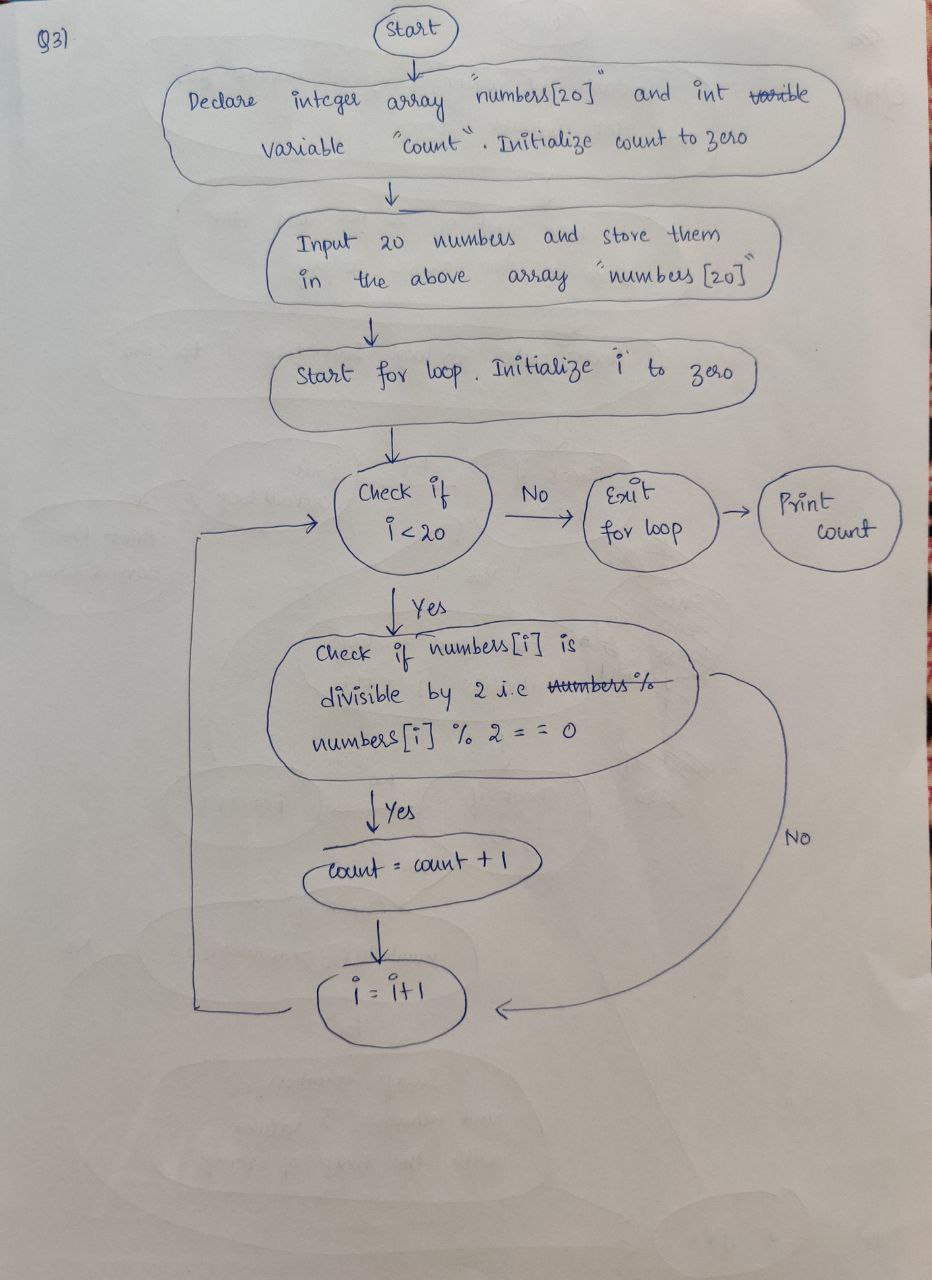 Q3)
Start
Declare integer array "numbers[20]" and int varible
variable "count". Initialize count to zero
Input 20 numbers and store them
in the above array "numbers[20]"
Start for loop. Initialize i to zero
Check if
i<20
No
Exit
for loop
Print
count
Yes
Check if numbers[i] is
divisible by 2 i.e numbers%
numbers[i] % 2 = = 0
Yes
No
count = count + 1
i = i+1